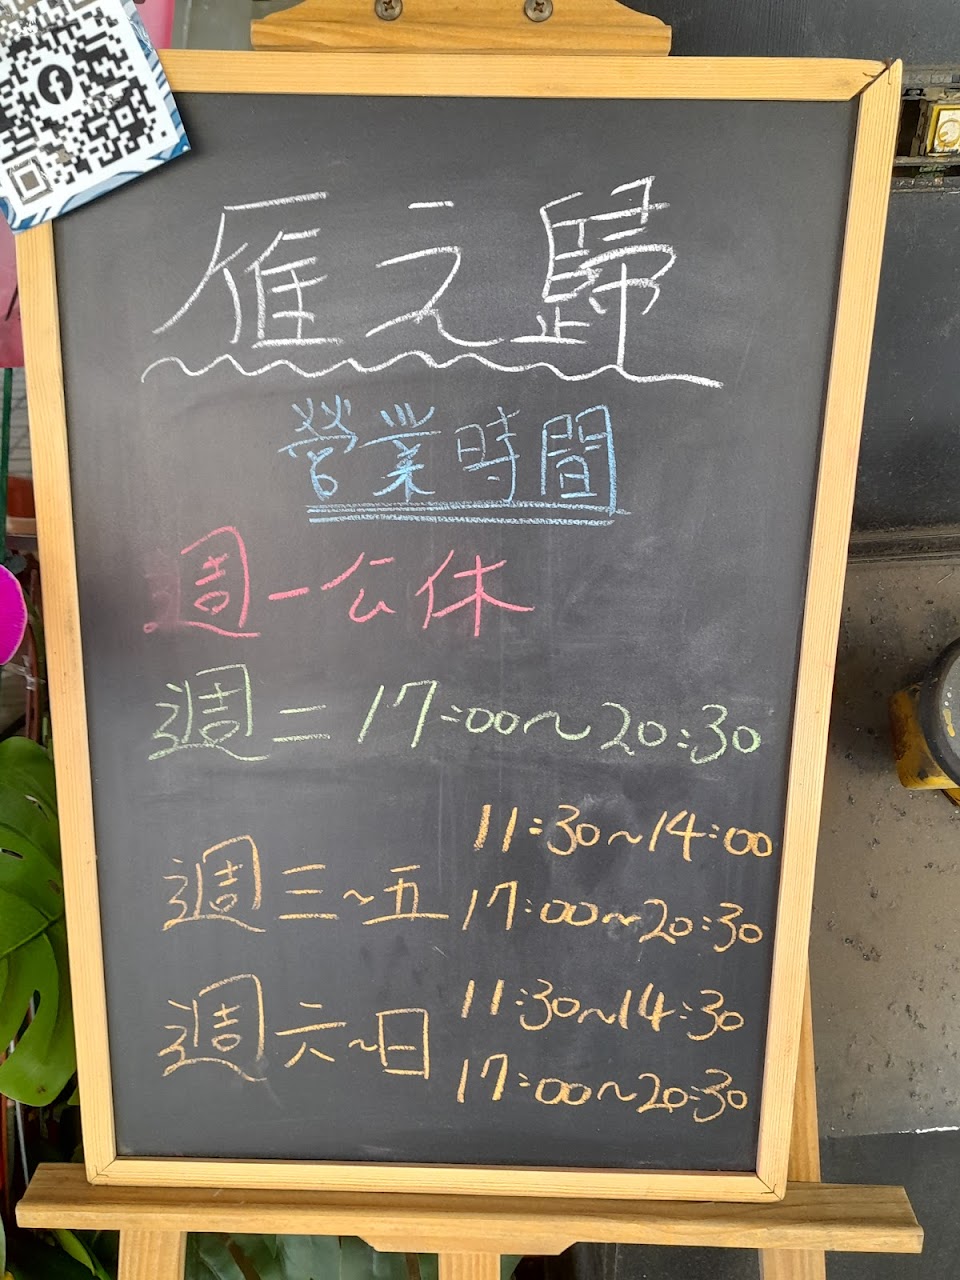 雁之歸
營業時間
週一公休
週二 17:00~20:30
週三~五 11:30~14:00
17:00~20:30
週六~日 11:30~14:30
17:00~20:30